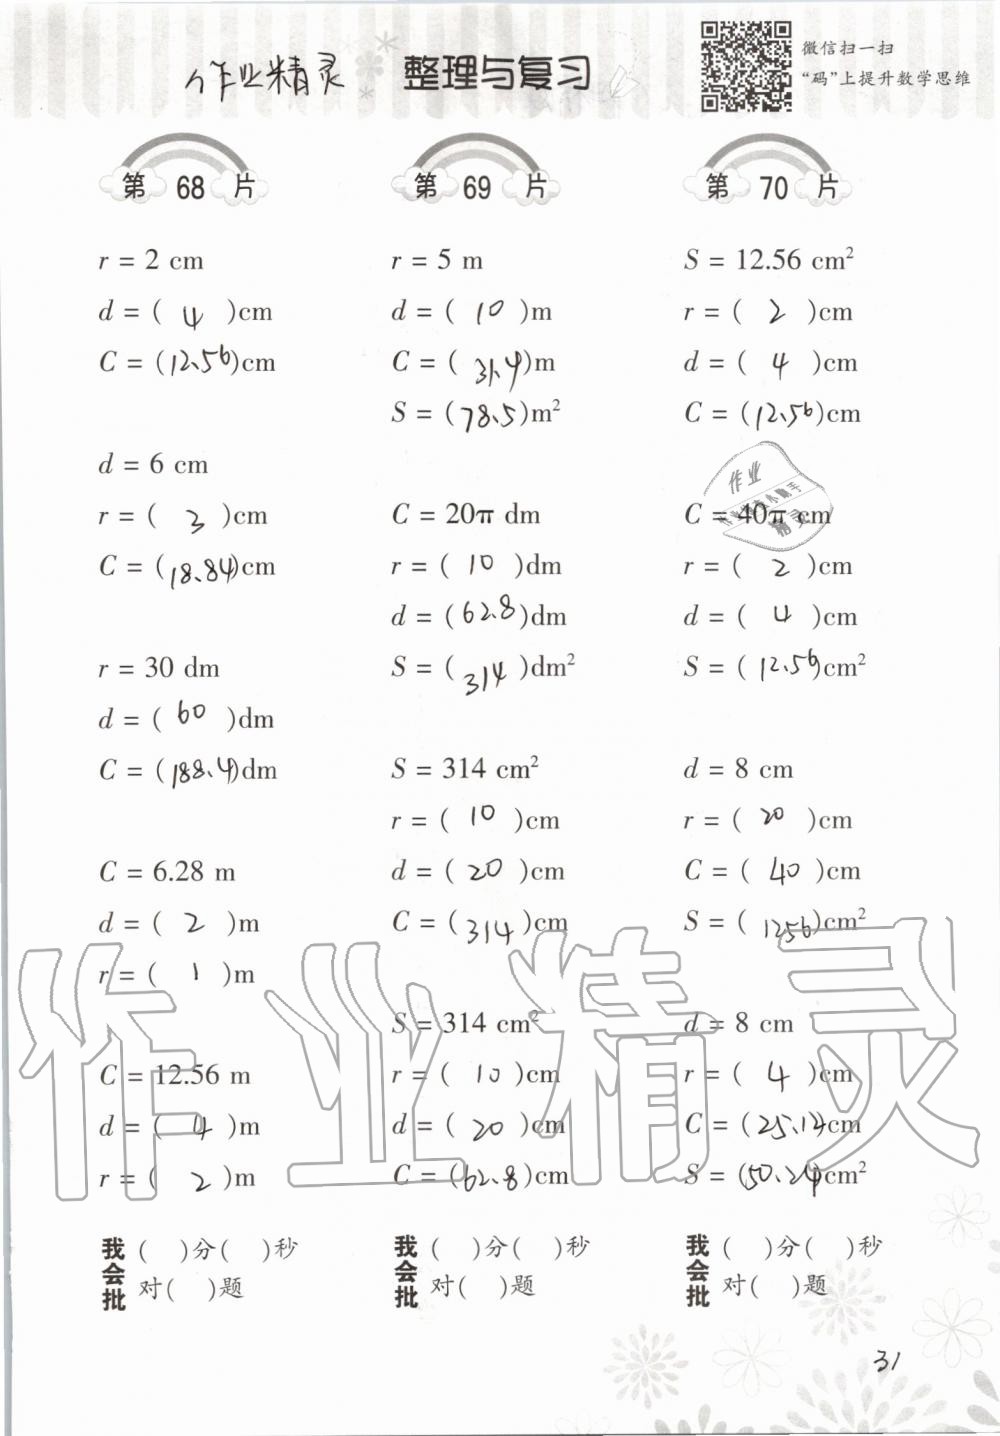 作业精灵 整理与复习
微信扫一扫
“码”上提升数学思维
第 68 片
r = 2 cm
d = ( 4 )cm
C = (12.56)cm
d = 6 cm
r = ( 3 )cm
C = (18.84)cm
r = 30 dm
d = ( 60 )dm
C = (188.4)dm
C = 6.28 m
d = ( 2 )m
r = ( 1 )m
C = 12.56 m
d = ( 4 )m
r = ( 2 )m
我会批
( )分( )秒
对( )题
第 69 片
r = 5 m
d = ( 10 )m
C = ( 31.4)m
S = (78.5)m²
C = 20π dm
r = ( 10 )dm
d = (62.8)dm
S = ( 314 )dm²
S = 314 cm²
r = ( 10 )cm
d = ( 20 )cm
C = ( 314 )cm
S = 314 cm²
r = ( 10 )cm
d = ( 20 )cm
C = (62.8)cm
我会批
( )分( )秒
对( )题
第 70 片
S = 12.56 cm²
r = ( 2 )cm
d = ( 4 )cm
C = (12.56)cm
C = 40π cm
r = ( 2 )cm
d = ( 4 )cm
S = (12.56)cm²
d = 8 cm
r = ( 20 )cm
C = ( 40 )cm
S = ( 1256)cm²
d = 8 cm
r = ( 4 )cm
C = (25.12)cm
S = (50.24)cm²
我会批
( )分( )秒
对( )题
作业
精灵
作业精灵
31